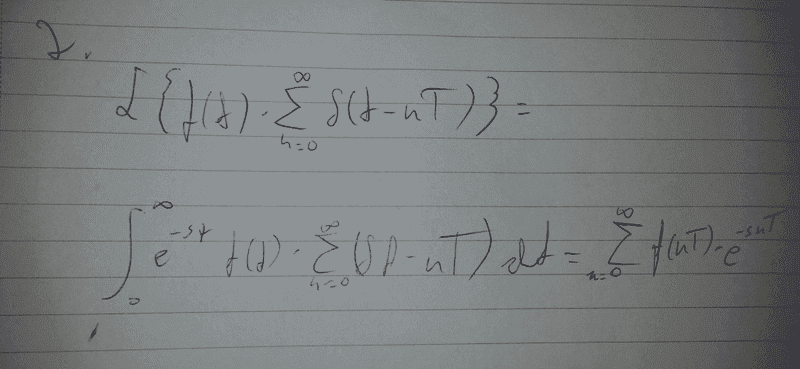 2.
ℒ{f(t)·∑_{n=0}^{∞} δ(t-nT)} =
∫_0^∞ e^{-st} f(t)·∑_{n=0}^{∞}(δt-nT) dt = ∑_{n=0}^{∞} f(nT)·e^{-snT}